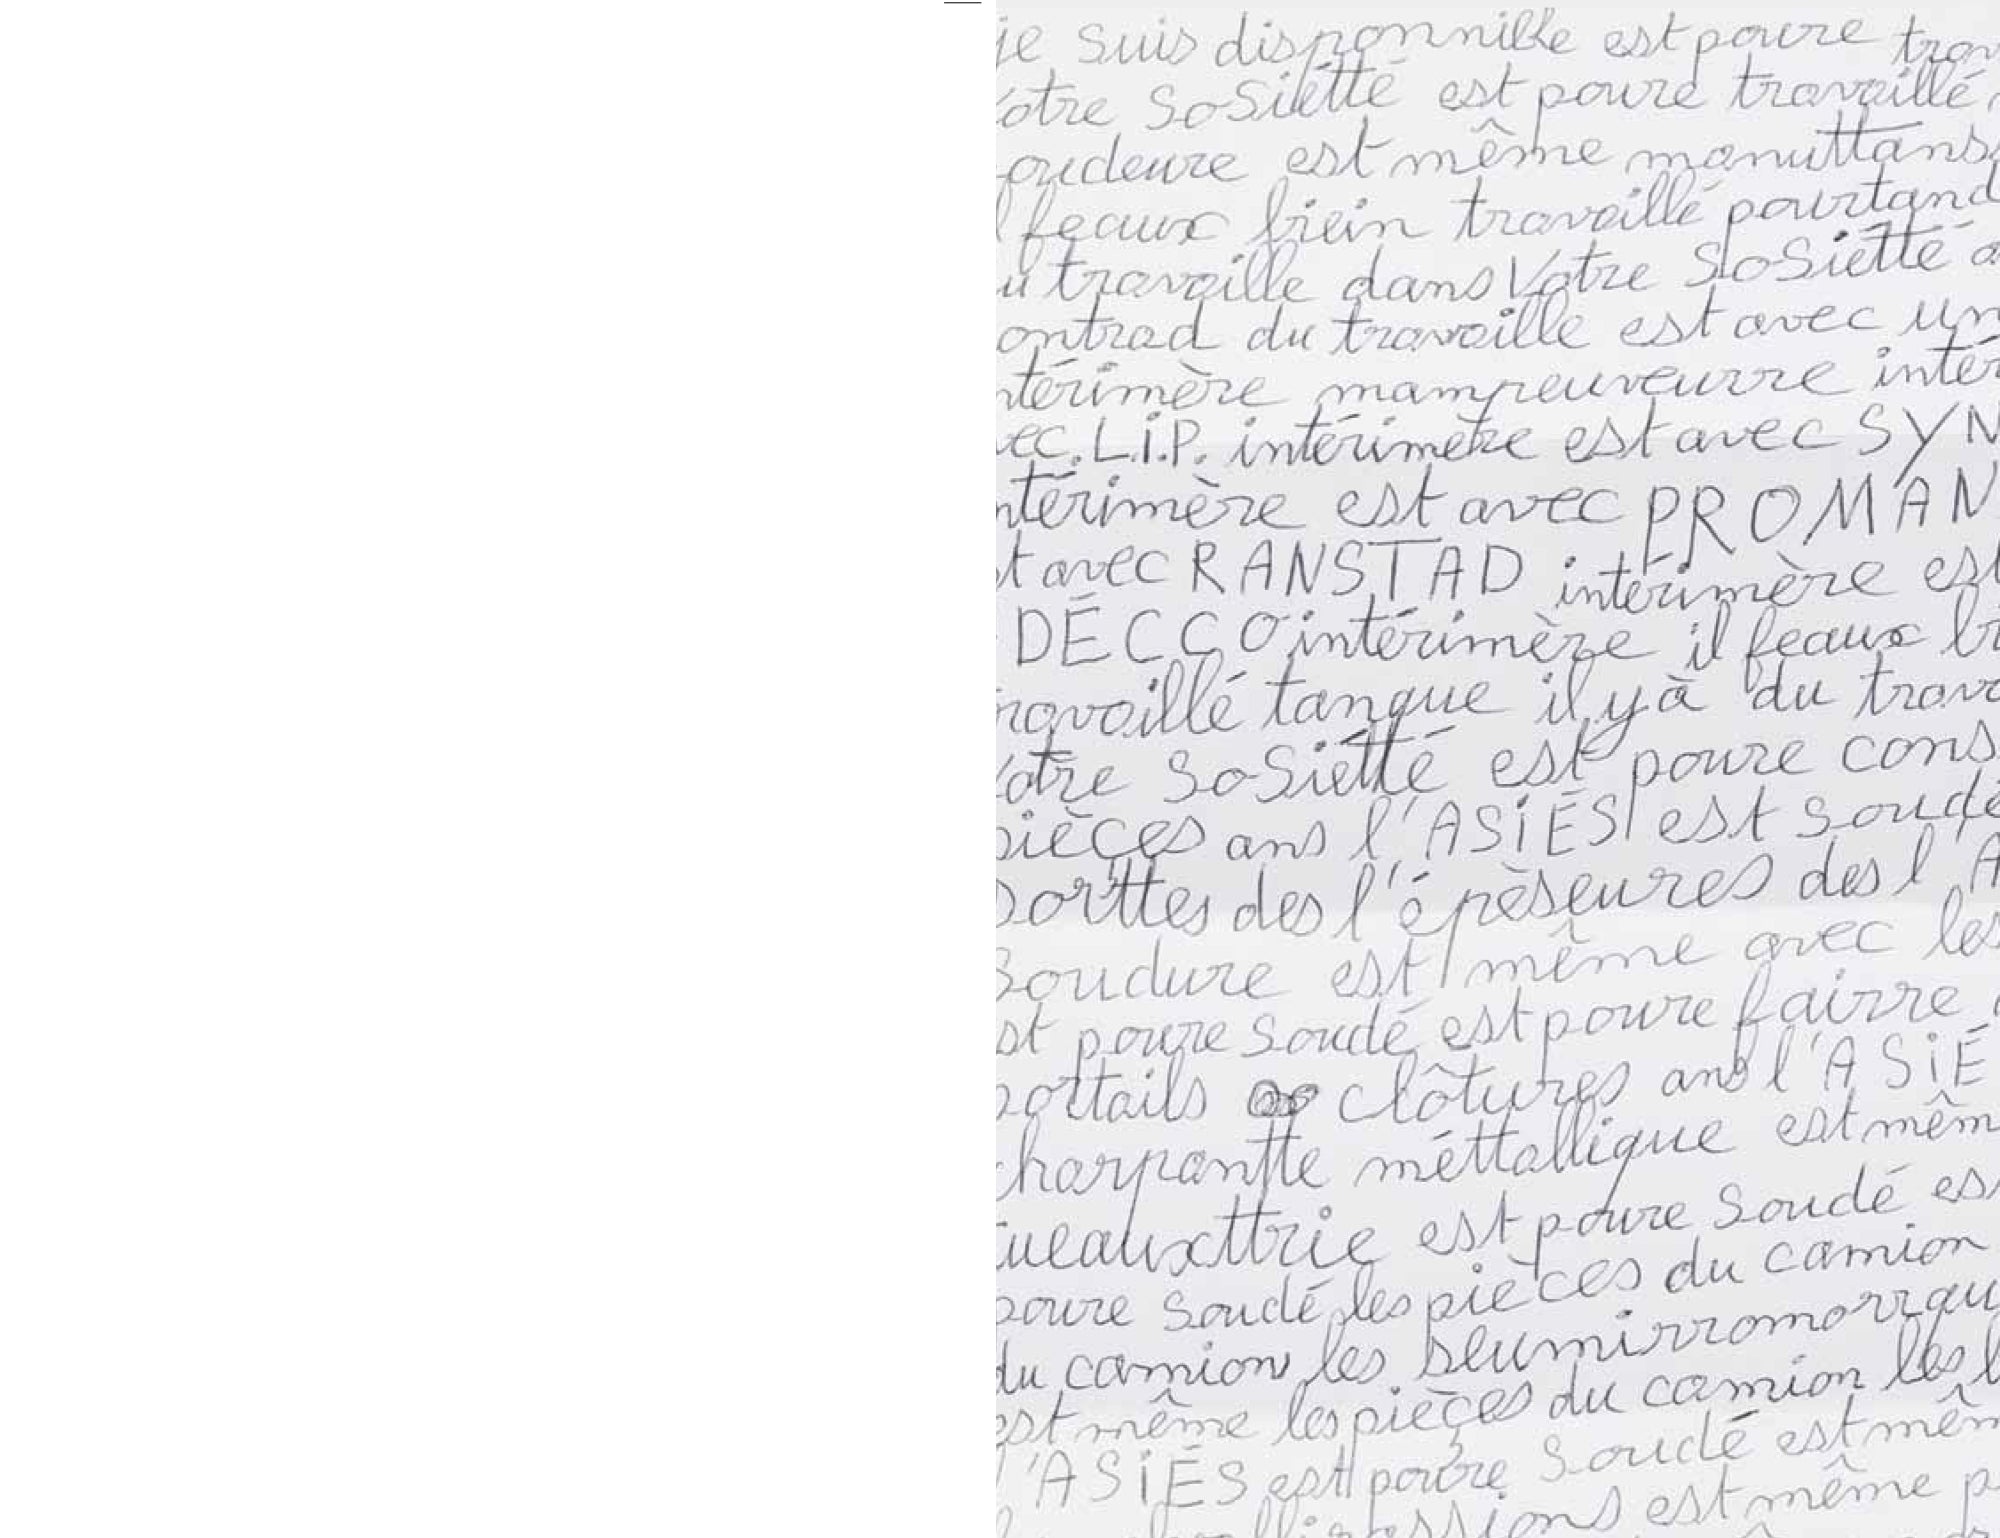 je suis disponnible est poure trav
Votre SoSiétté est poure travaillé
oudeure est même manuttans
feaux biein travaillé pourtand
u travaille dans Votre SoSiétté a
ontrad du travaille est avec un
ntérimère mampreuveurre intér
vec. L.i.P. intérimère est avec SYN
ntérimère est avec PROMAN
t avec RANSTAD intérimère est
DÉCCO intérimère il feaux bi
ravaillé tanque il y à du trava
Votre SoSiétté est poure cons
pièçes ans l'ASiÉS est soudé
sorttes des l'épèseures des l'A
Soudure est même avec les
st poure Soudé est poure fairre
portails clôtures ans l'ASiÉ
charpantte méttallique est mêm
tueauxttrie est poure Soudé es
poure Soudé les pièces du camion
du camion les seumirromorrqu
est même les pièçes du camion les l
l'ASiÉS est poure Soudé est mêm
est même p